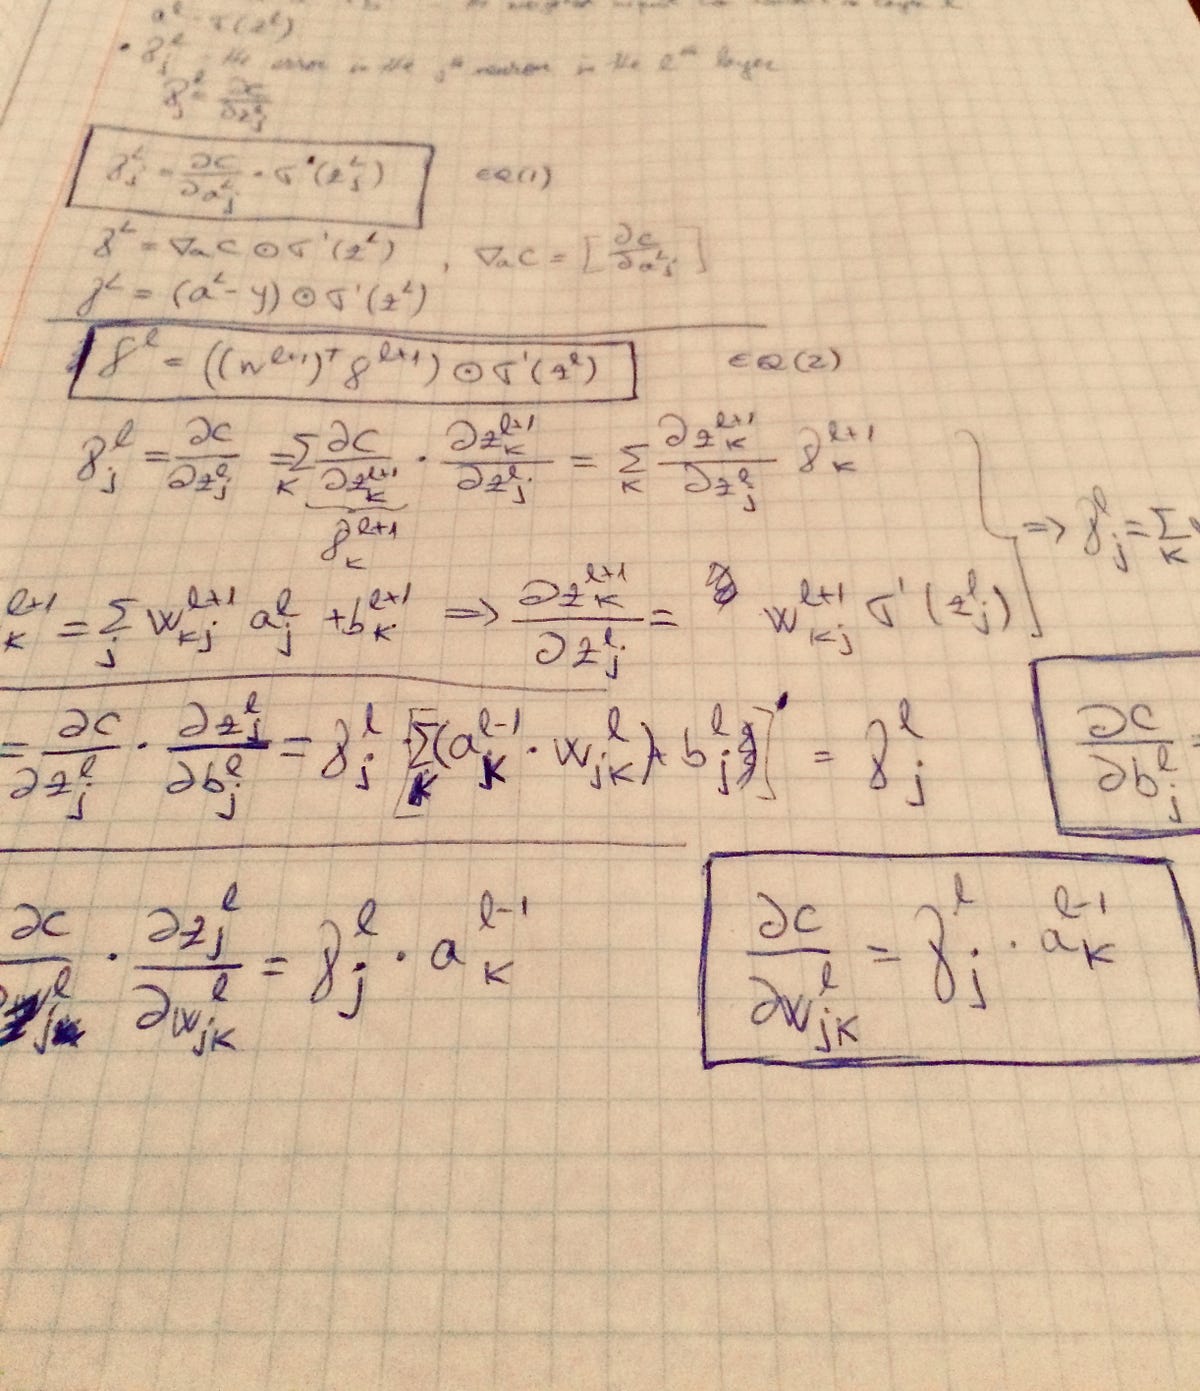 a^l = σ(z^l)
• δ_j^l - the error in the j^th neuron in the l^th layer
δ_j^l = ∂C/∂z_j^l
δ_j^L = ∂C/∂a_j^L · σ'(z_j^L) EQ(1)
δ^L = ∇_a C ⊙ σ'(z^L) , ∇_a C = [∂C/∂a_j^L]
δ^L = (a^L - y) ⊙ σ'(z^L)
δ^l = ((w^{l+1})^T δ^{l+1}) ⊙ σ'(z^l) EQ(2)
δ_j^l = ∂C/∂z_j^l = Σ_k ∂C/∂z_k^{l+1} · ∂z_k^{l+1}/∂z_j^l = Σ_k ∂z_k^{l+1}/∂z_j^l δ_k^{l+1}
δ_k^{l+1}
⇒ δ_j^l = Σ_k
_k^{l+1} = Σ_j w_{kj}^{l+1} a_j^l + b_k^{l+1} ⇒ ∂z_k^{l+1}/∂z_j^l = w_{kj}^{l+1} σ'(z_j^l)
= ∂C/∂z_j^l · ∂z_j^l/∂b_j^l = δ_j^l [Σ_k (a_k^{l-1} · w_{jk}^l) + b_j^l]' = δ_j^l
∂C/∂b_j^l =
∂C/∂ · ∂z_j^l/∂w_{jk}^l = δ_j^l · a_k^{l-1}
∂C/∂w_{jk}^l = δ_j^l · a_k^{l-1}